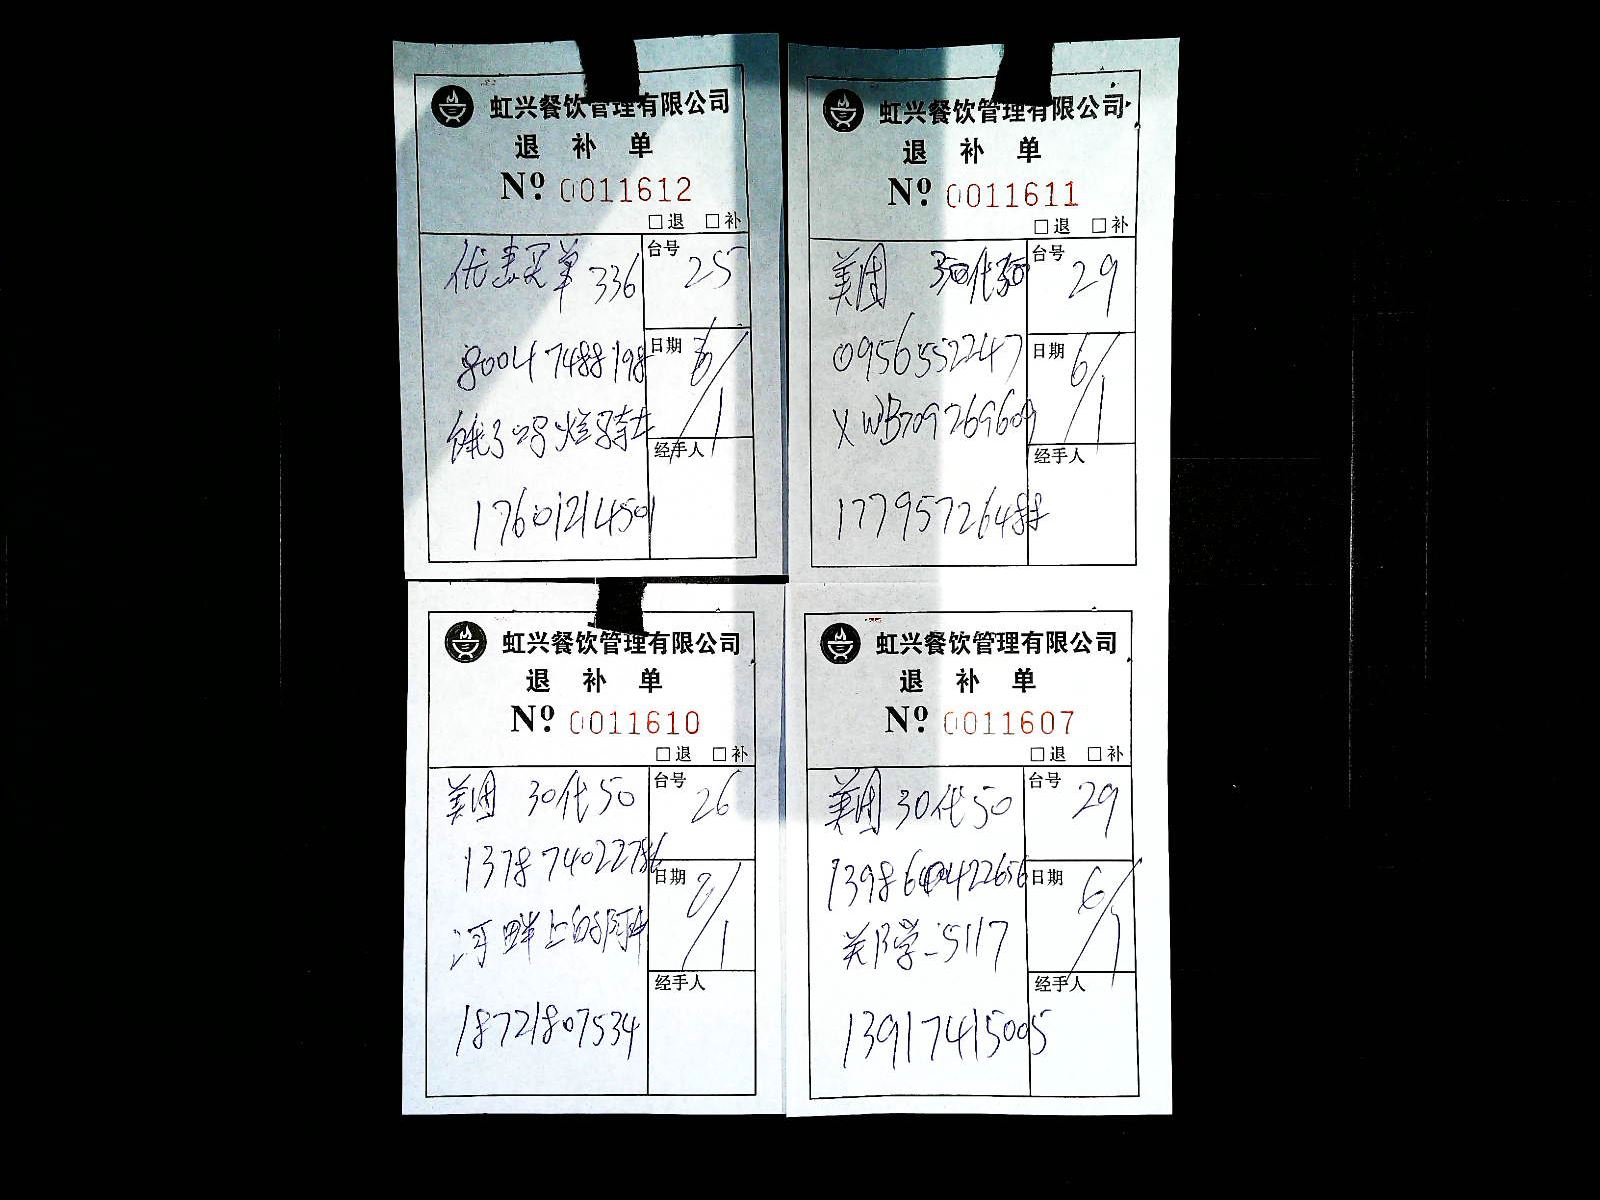 虹兴餐饮管理有限公司
退 补 单
Nº 0011612
□退 □补
优惠买单 336
台号 25
80047488198
日期 6/1
饿了吗 骑士
经手人
17601214501
虹兴餐饮管理有限公司
退 补 单
Nº 0011611
□退 □补
美团 30代50
台号 29
0956552247
日期 6/1
XWB709269609
经手人
17795726488
虹兴餐饮管理有限公司
退 补 单
Nº 0011610
□退 □补
美团 30代50
台号 26
137874022786
日期 6/1
河畔上的
经手人
18721807534
虹兴餐饮管理有限公司
退 补 单
Nº 0011607
□退 □补
美团 30代50
台号 29
日期 6/1
5117
经手人
13917415005